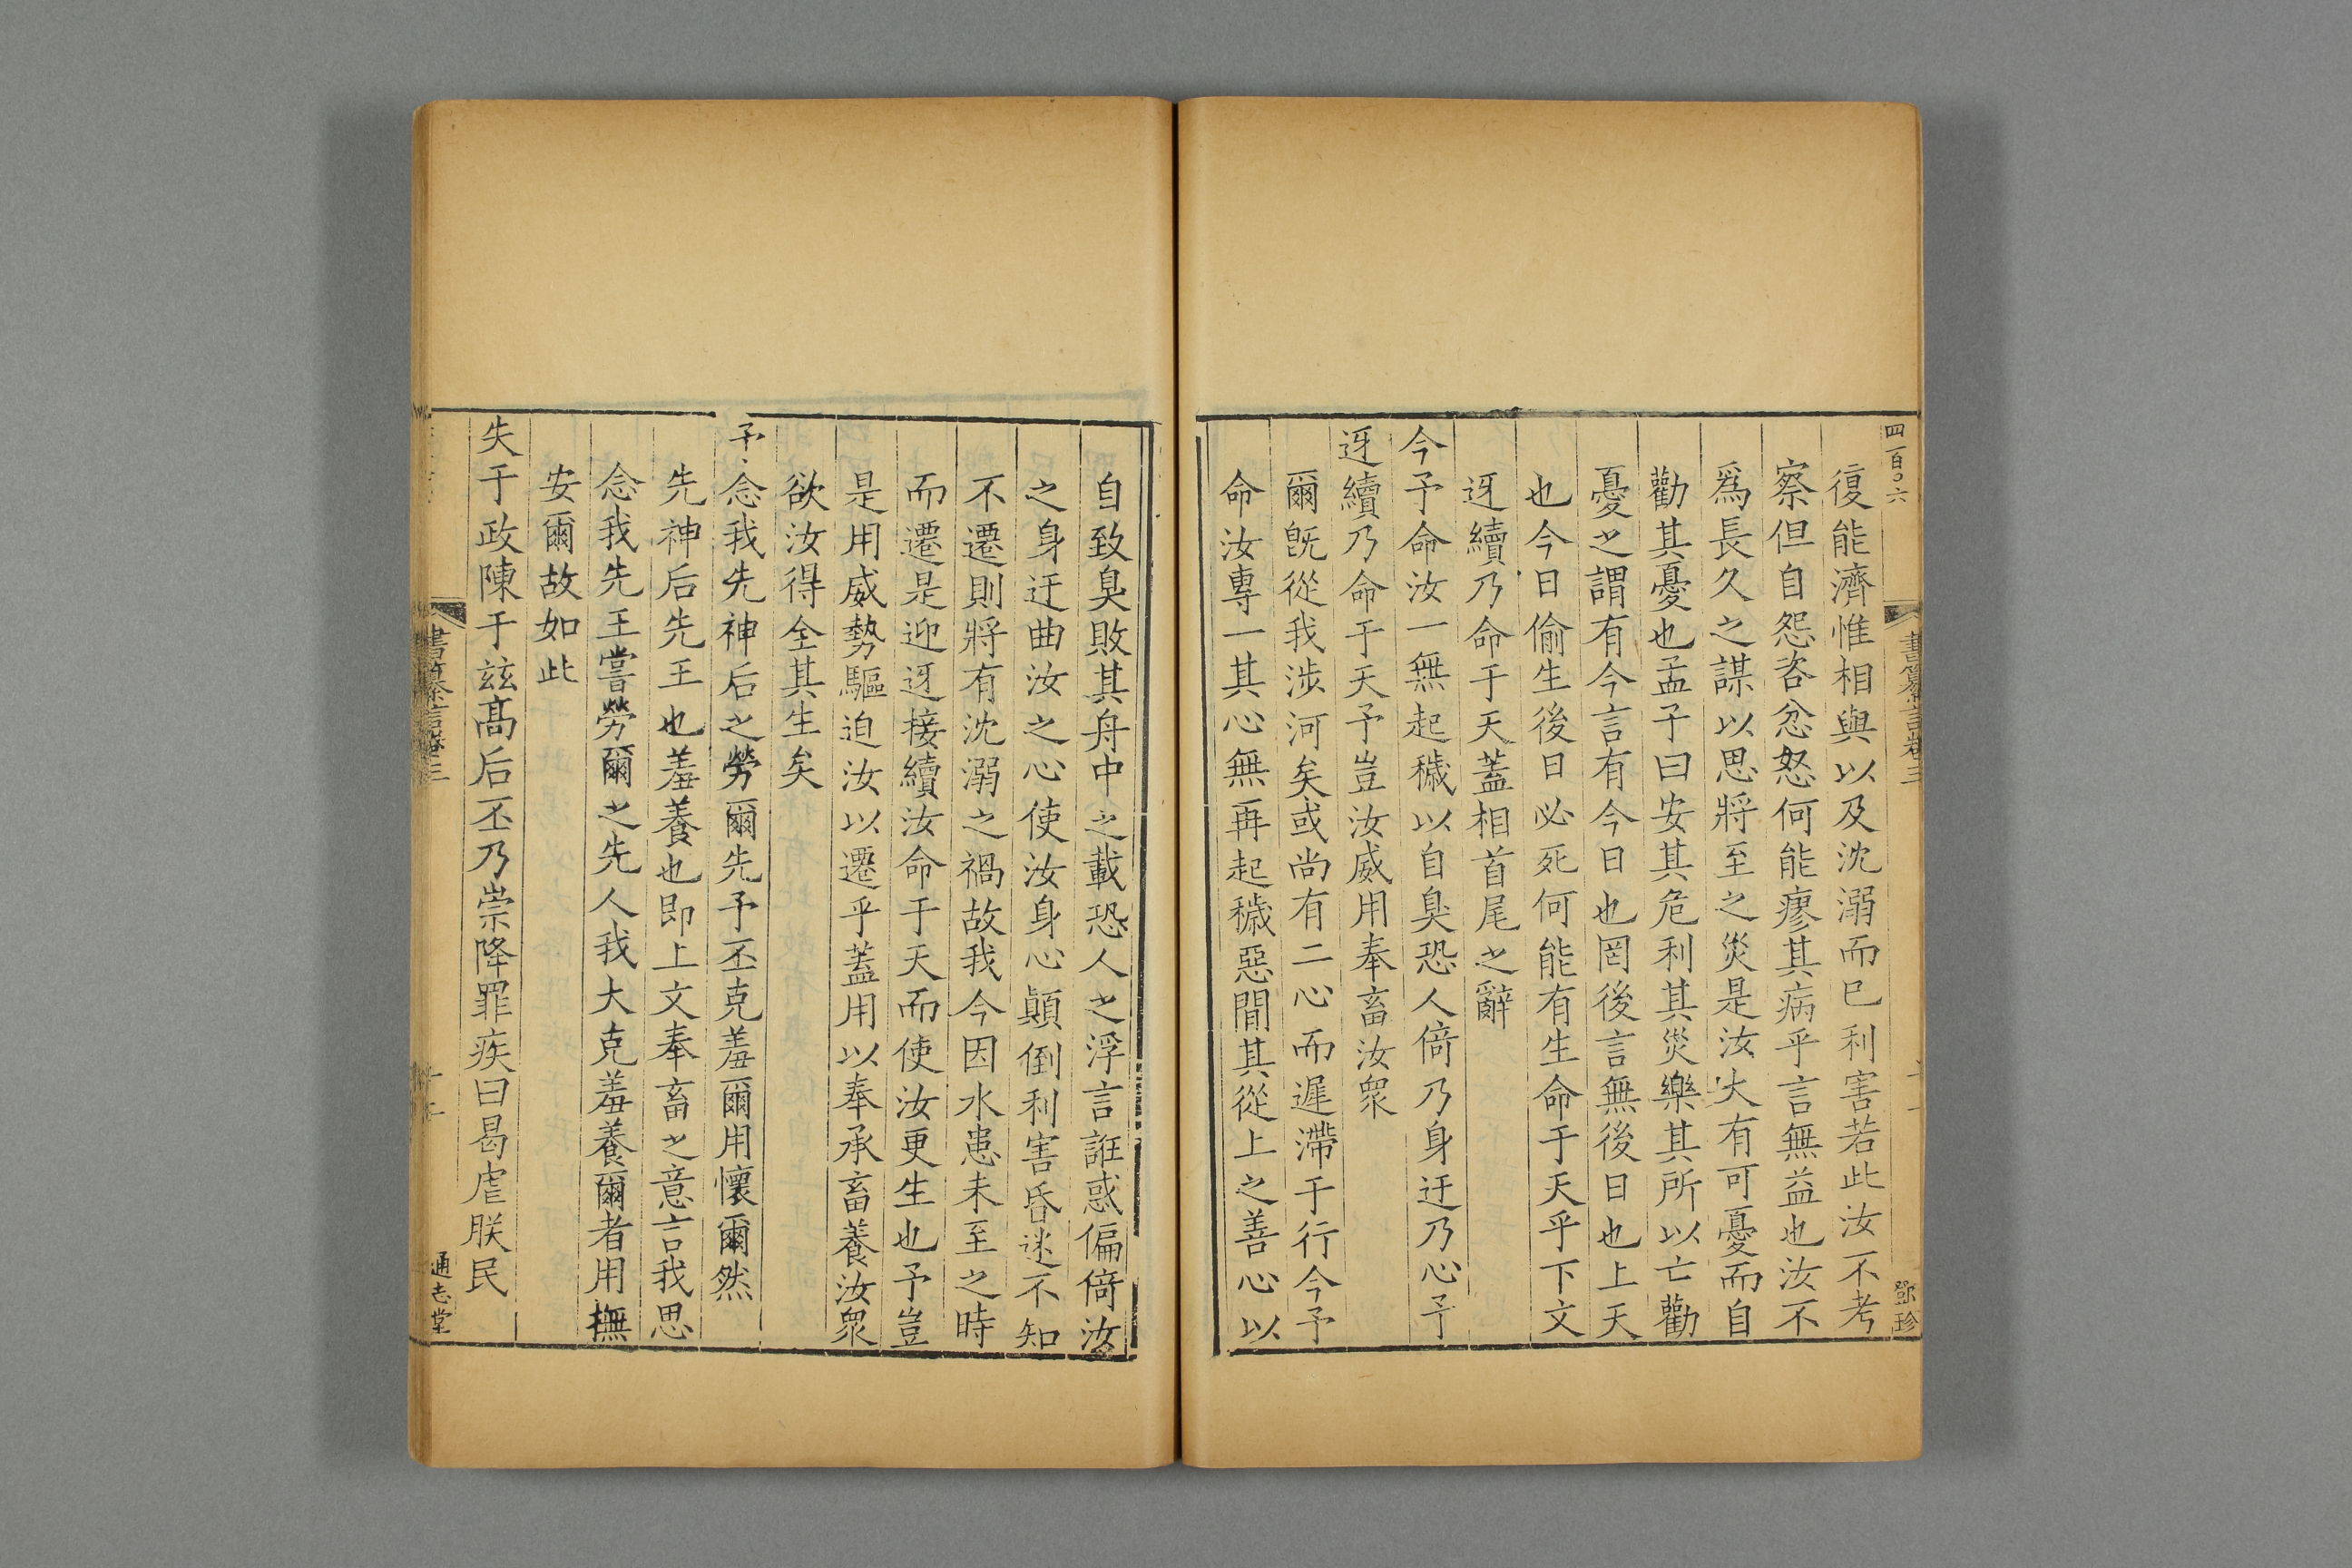 四百〇六
書纂言卷三
鄧珍
復能濟惟相與以及沈溺而已利害若此汝不考
察但自怨咨忿怒何能瘳其病乎言無益也汝不
爲長久之謀以思將至之災是汝大有可憂而自
勸其憂也孟子曰安其危利其災樂其所以亡勸
憂之謂有今言有今日也罔後言無後日也上天
也今日偷生後日必死何能有生命于天乎下文
迓續乃命于天蓋相首尾之辭
今予命汝一無起穢以自臭恐人倚乃身迂乃心予
迓續乃命于天予豈汝威用奉畜汝衆
爾旣從我涉河矣或尚有二心而遲滯于行今予
命汝專一其心無再起穢惡間其從上之善心以
自致臭敗其舟中之載恐人之浮言誑惑偏倚汝
之身迂曲汝之心使汝身心顛倒利害昏迷不知
不遷則將有沈溺之禍故我今因水患未至之時
而遷是迎迓接續汝命于天而使汝更生也予豈
是用威勢驅迫汝以遷乎蓋用以奉承畜養汝衆
欲汝得全其生矣
予念我先神后之勞爾先予丕克羞爾用懷爾然
先神后先王也羞養也即上文奉畜之意言我思
念我先王嘗勞爾之先人我大克羞養爾者用撫
安爾故如此
失于政陳于茲高后丕乃崇降罪疾曰曷虐朕民
書纂言卷三
通志堂